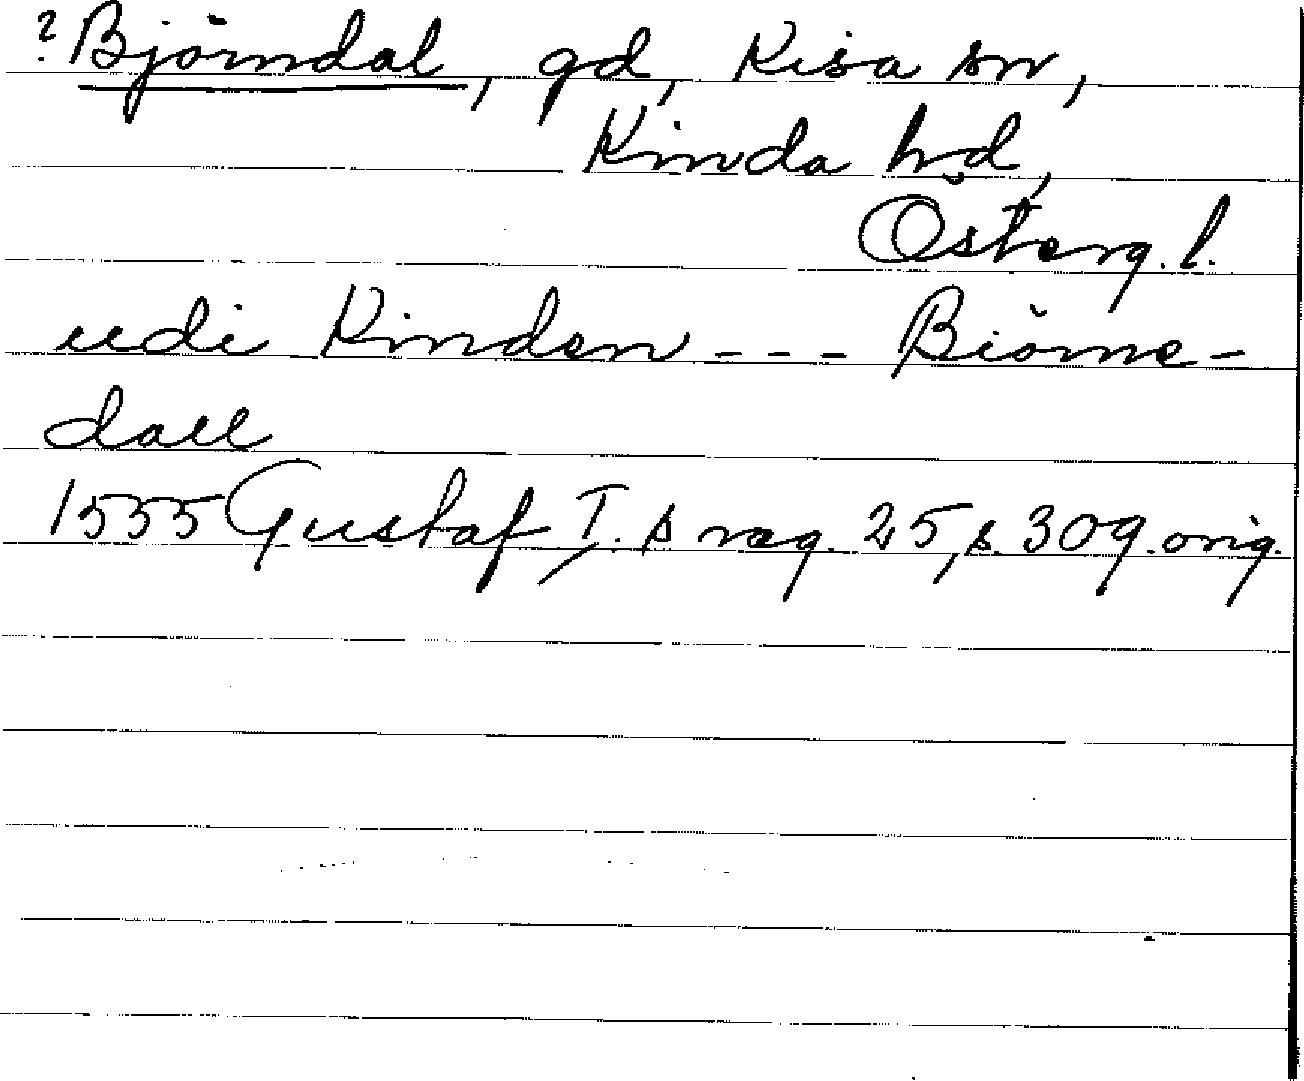 ? Björndal, gd, Kisa sn,
Kinda hd,
Österg. l.
udi Kinden --- Biörne-
dall
1555 Gustaf I. s reg. 25, s. 309. orig.